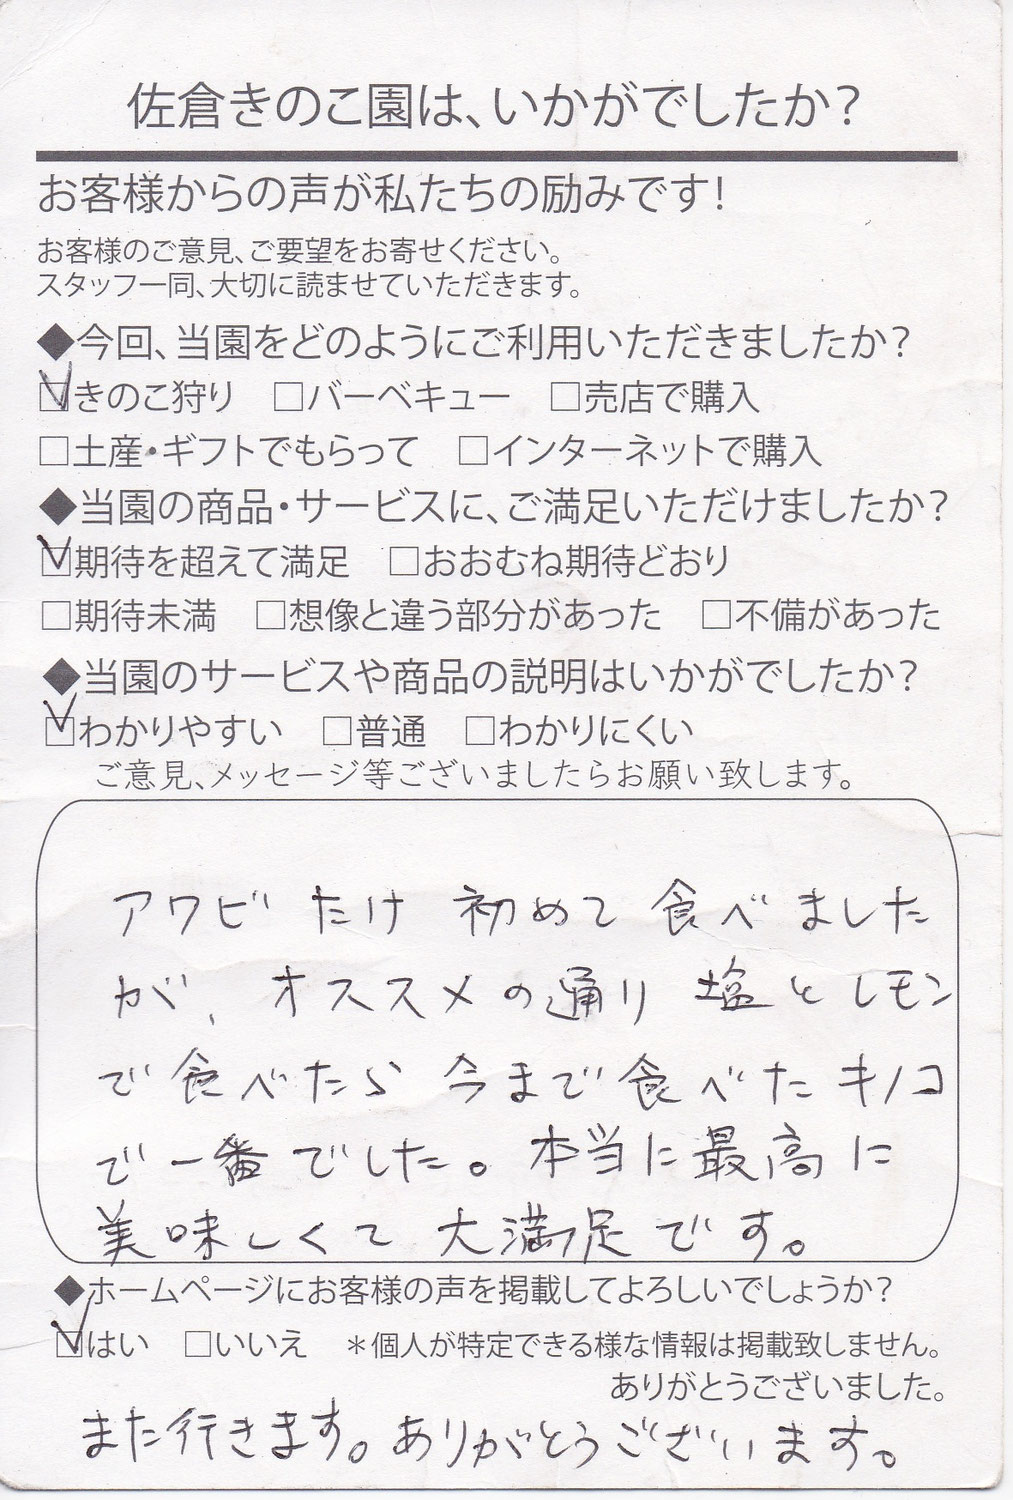 佐倉きのこ園は、いかがでしたか?
お客様からの声が私たちの励みです!
お客様のご意見、ご要望をお寄せください。
スタッフ一同、大切に読ませていただきます。
◆今回、当園をどのようにご利用いただきましたか?
☑きのこ狩り □バーベキュー □売店で購入
□土産・ギフトでもらって □インターネットで購入
◆当園の商品・サービスに、ご満足いただけましたか?
☑期待を超えて満足 □おおむね期待どおり
□期待未満 □想像と違う部分があった □不備があった
◆当園のサービスや商品の説明はいかがでしたか?
☑わかりやすい □普通 □わかりにくい
ご意見、メッセージ等ございましたらお願い致します。
アワビたけ 初めて 食べました
が、オススメの通り 塩とレモン
で食べたら 今まで食べたキノコ
で一番でした。本当に最高に
美味しくて 大満足です。
◆ホームページにお客様の声を掲載してよろしいでしょうか?
☑はい □いいえ *個人が特定できる様な情報は掲載致しません。
ありがとうございました。
また行きます。ありがとうございます。